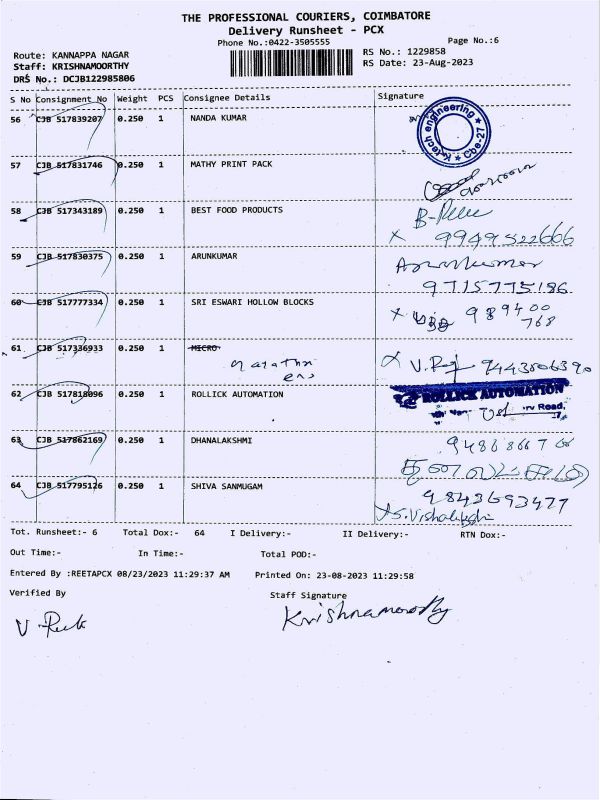 THE PROFESSIONAL COURIERS, COIMBATORE
Delivery Runsheet - PCX
Phone No.:0422-3505555
Page No.:6
Route: KANNAPPA NAGAR
RS No.: 1229858
Staff: KRISHNAMOORTHY
RS Date: 23-Aug-2023
DRS No.: DCJB122985806
S No Consignment No Weight PCS Consignee Details Signature
56 CJB 517839207 0.250 1 NANDA KUMAR
tech engineering Cbe-27
57 CJB 517831746 0.250 1 MATHY PRINT PACK
58 CJB 517343189 0.250 1 BEST FOOD PRODUCTS
X 9949522666
59 CJB 517830375 0.250 1 ARUNKUMAR Arunkumar
9715775186
60 CJB 517777334 0.250 1 SRI ESWARI HOLLOW BLOCKS X 989400
768
61 CJB 517336933 0.250 1 MICRO
X V. 9443506390
62 CJB 517818096 0.250 1 ROLLICK AUTOMATION ROLLICK AUTOMATION
Road,
63 CJB 517862169 0.250 1 DHANALAKSHMI
64 CJB 517795126 0.250 1 SHIVA SANMUGAM 9843693477
S. Vishalakshi
Tot. Runsheet:- 6 Total Dox:- 64 I Delivery:- II Delivery:- RTN Dox:-
Out Time:- In Time:- Total POD:-
Entered By :REETAPCX 08/23/2023 11:29:37 AM Printed On: 23-08-2023 11:29:58
Verified By Staff Signature
Krishnamoorthy